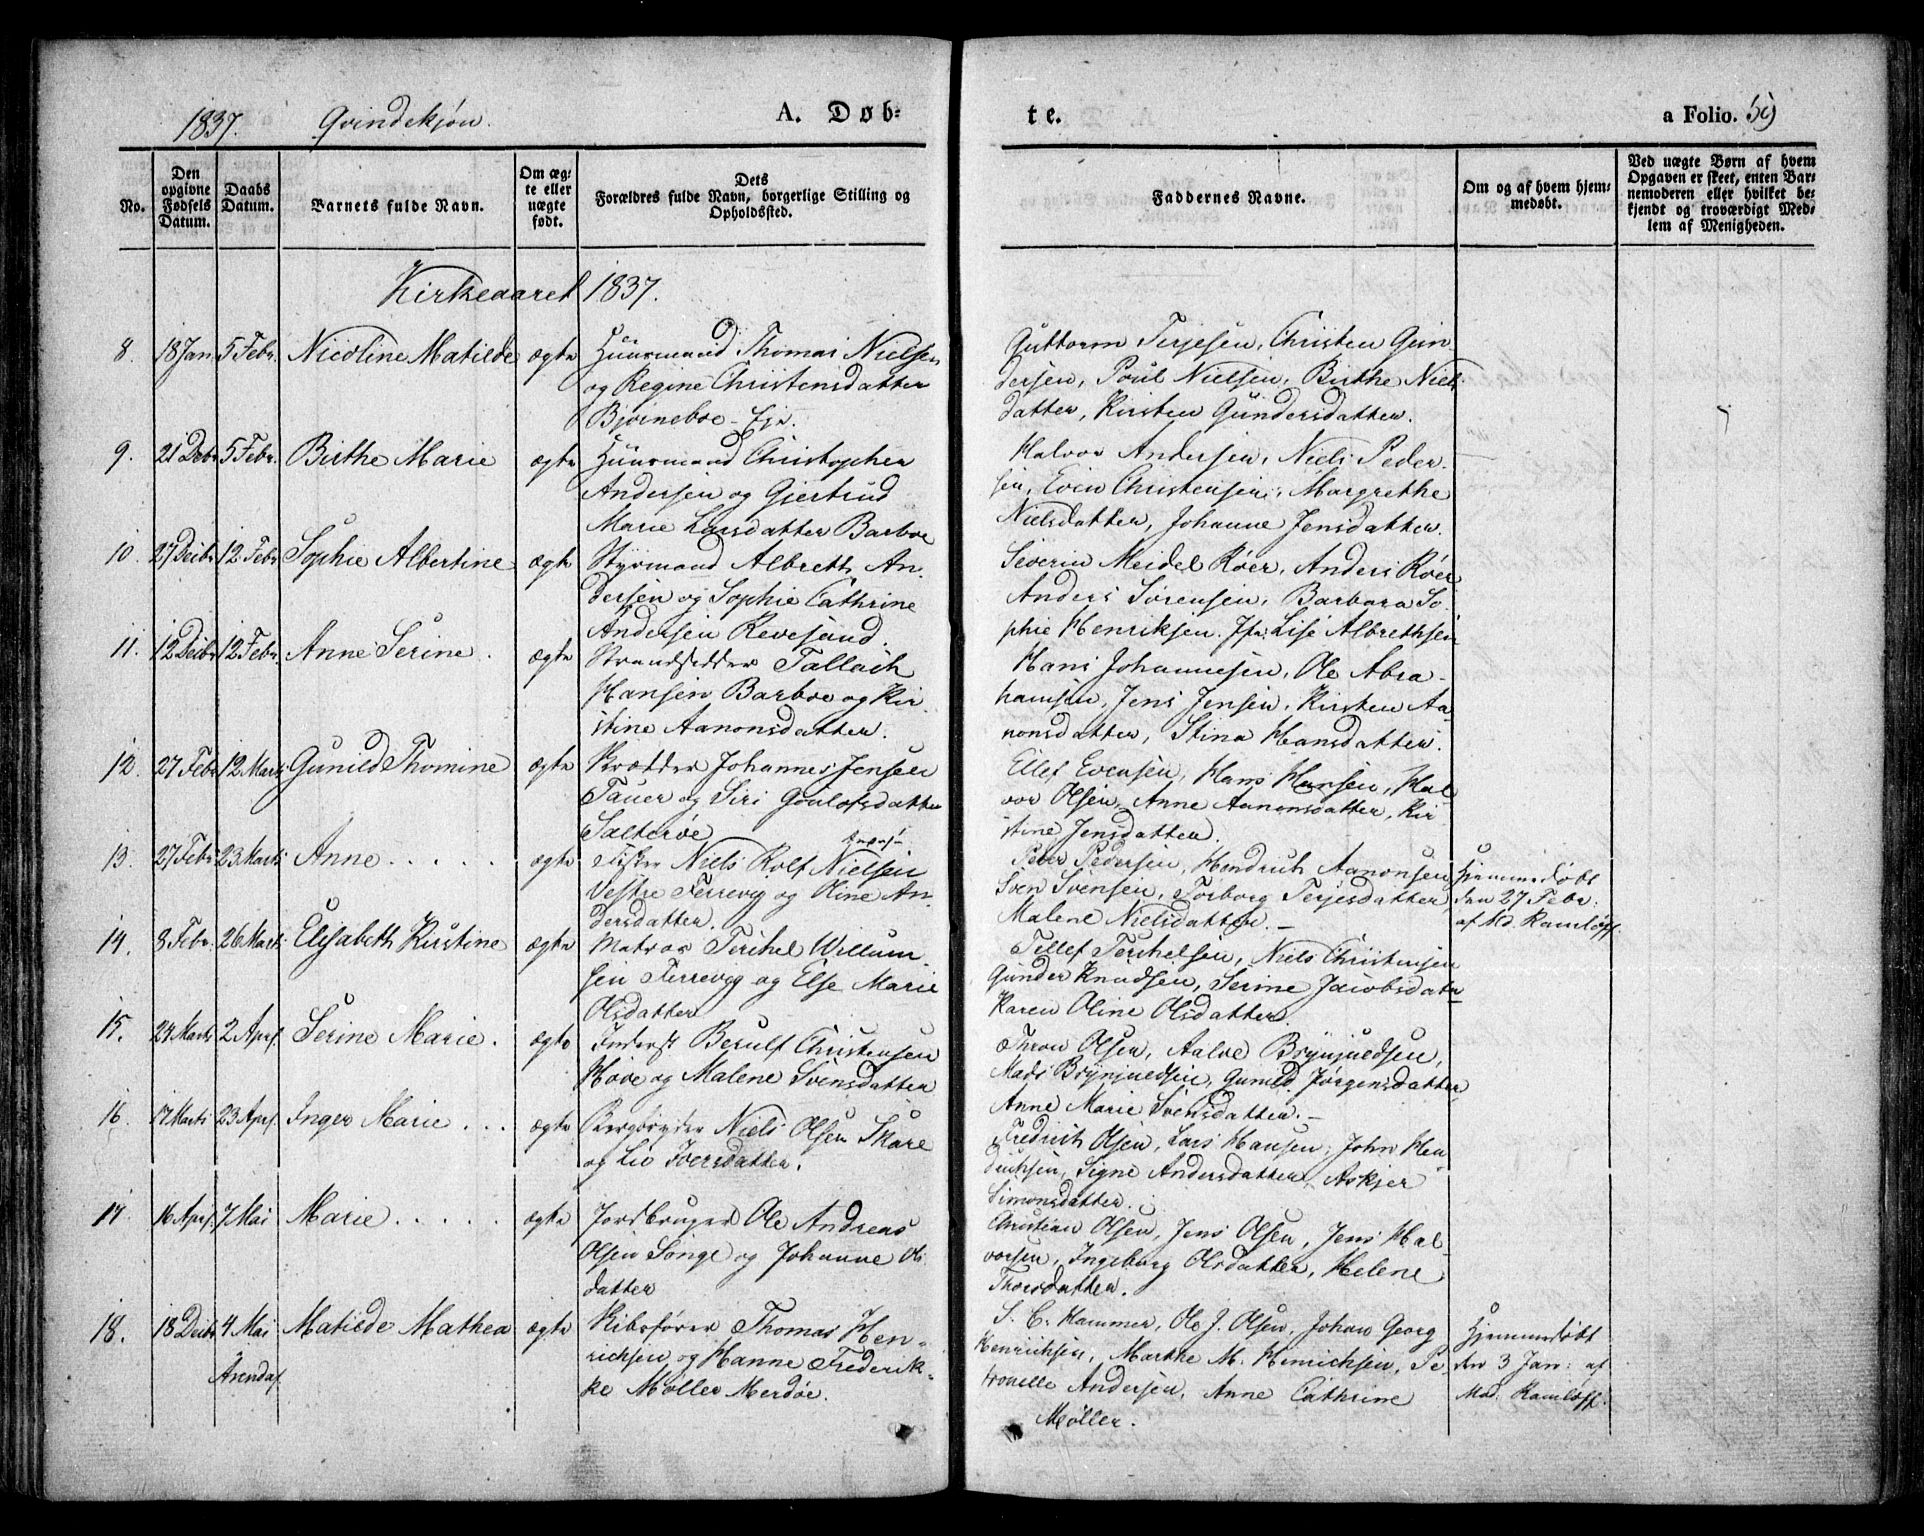 1837. Qvindekjøn. A. Døb-
te. a Folio. 59
No.
Den opgivne Fødsels Datum.
Daabs Datum.
Barnets fulde Navn.
Om ægte eller uægte født.
Dets Forældres fulde Navn, borgerlige Stilling og Opholdssted.
Faddernes Navne.
Om og af hvem hjemmedøbt.
Ved uægte Børn af hvem Opgaven er skeet, enten Barnemoderen eller hvilket bekjendt og troværdigt Medlem af Menigheden.
Kirkeaaret 1837.
8. 18 Jan. 5 Febr. Nicoline Matilde ægte Huusmand Thomas Nielsen
og Regine Christensdatter
Bjorneboe - Eje.
Guttorm Terjesen, Christen Gun-
dersen, Poul Nielsen, Birthe Niels-
datter, Kirsten Gundersdatter.
9. 21 Decbr 5 Febr. Birthe Marie ægte Huusmand Christopher
Andersen og Gjertrud
Marie Larsdatter Barboe
Halvor Andersen, Niels Peder-
sen, Even Christensen, Margrethe
Nielsdatter, Johanne Jensdatter.
10. 27 Decbr 12 Febr Sophie Albertine ægte Styrmand Albreth An-
dersen og Sophie Cathrine
Andersen Revesand.
Severin Meidel Röer, Anders Röer
Anders Sörensen, Barbara So-
phie Henriksen. Jfr. Lise Albrethsen
11. 12 Decbr 12 Febr. Anne Serine. ægte Strandsidder Tallach
Hansen Barboe og Kir-
stine Aanonsdatter.
Hans Johannesen, Ole Abra-
hamsen, Jens Jensen, Kirsten Aa-
nonsdatter, Stina Hansdatter.
12. 27 Febr 12 Marts Gunild Thomine ægte Skrædder Johannes Jensen
Tauer og Siri Goulofsdatter
Salteröe
Ellef Evensen, Hans Hansen, Hal-
vor Olsen, Anne Aanonsdatter, Kir-
stine Jensdatter.
13. 27 Febr 23 Marts Anne . . . . . ægte Fisker Niels Rolf Nielsen
Vestre Terrevig og Oline An-
dersdatter.
Peder Pedersen, Hendrich Aanonsen
Sven Svensen, Torborg Terjesdatter,
Malene Nielsdatter. -
Hjemmedøbt
den 27 Febr.
af Md. Ramløff.
14. 3 Febr. 26 Marts Elisabeth Kirstine ægte Matros Terchel Willum-
sen Terrevig og Else Marie
Olsdatter
Tellef Terchelsen, Niels Christensen
Gunder Knudsen, Serine Jacobsdater
Karen Oline Olsdatter.
15. 24 Marts 2 Apr. Serine Marie. ægte Inderst Berulf Christensen
Hove og Malene Svensdatter
Thron Olsen, Aalve Brynjuedsen,
Mads Brynjuedsen, Gunild Jørgensdatter
Anne Marie Svensdatter. -
16. 17 Marts 23 Apr. Inger Marie . . . ægte Bergbryder Niels Olsen Skare
og Liv Iversdatter.
Fredrich Olsen, Lars Hansen, John Hen-
drichsen, Signe Andersdatter, Askjer
Simonsdatter.
17. 16 Apr. 7 Mai Marie . . . . . ægte Jordbruger Ole Andreas
Olsen Songe og Johanne Ols-
datter
Christian Olsen, Jens Olsen, Jens Hal-
vorsen, Ingeborg Olsdatter, Helene
Thorsdatter.
18. 18 Decbr 4 Mai
Arendal
Matilde Mathea ægte Skibsfører Thomas Hen-
richsen og Hanne Frederik-
ke Møller Merdøe.
S. C. Hammer, Ole J. Olsen, Johan Georg
Henrichsen, Marthe M. Henrichsen, Pe-
tronelle Andersen, Anne Cathrine
Møller.
Hjemmedøbt
den 3 Jan: af
Mad. Ramløff.